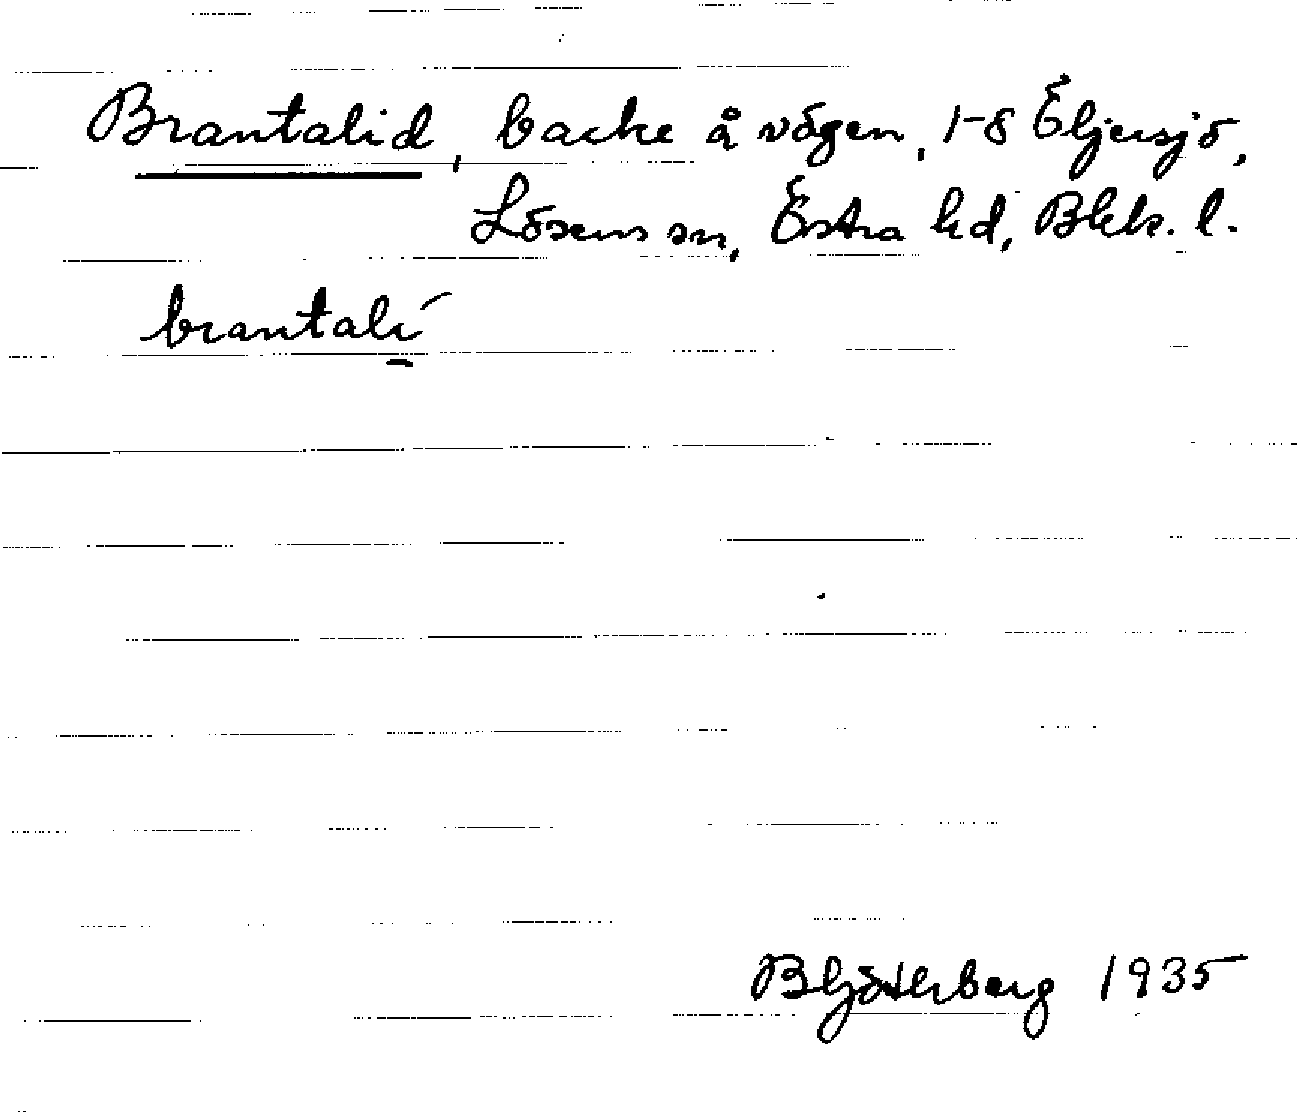 Brantalid, backe å vägen, 1-8 Öljersjö,
Lösens sn, Östra hd, Blek. l.
brantali
1935